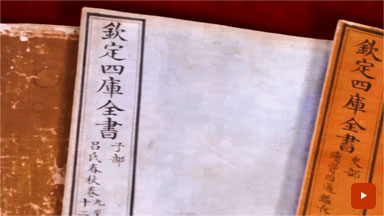 欽定四庫全書
子部
呂氏春秋卷九至
十二
欽定四庫全書
史部